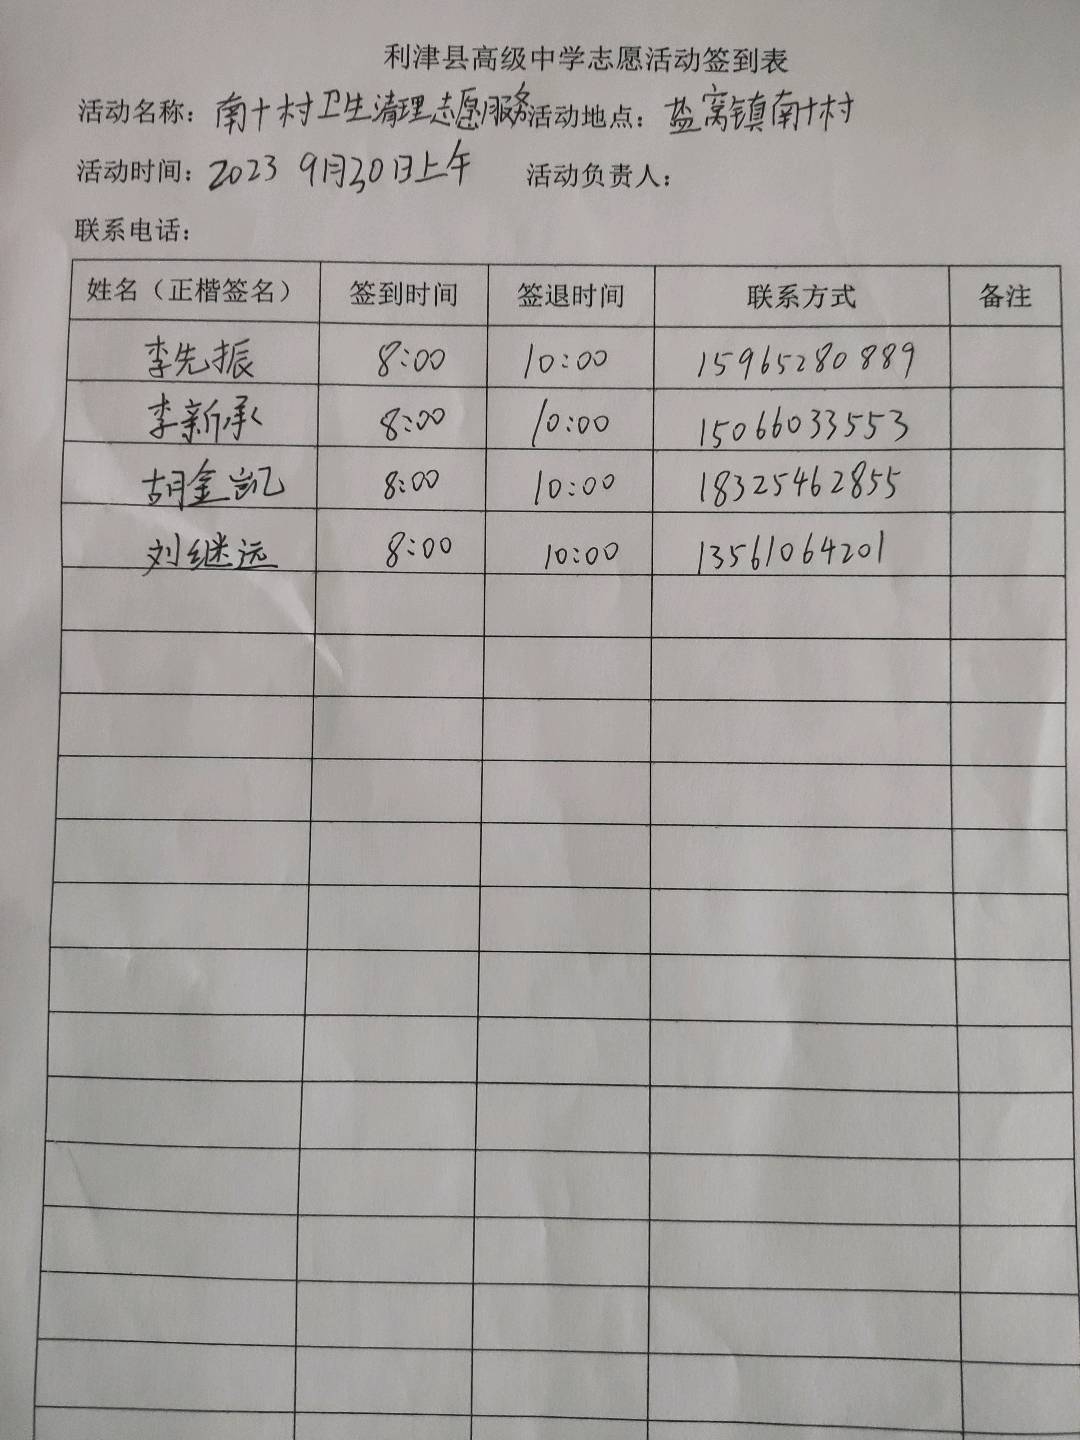 利津县高级中学志愿活动签到表
活动名称：南十村卫生清理志愿服务 活动地点：盐窝镇南十村
活动时间：2023 9月30日上午 活动负责人：
联系电话：
姓名（正楷签名） 签到时间 签退时间 联系方式 备注
李先振 8:00 10:00 15965280889
李新承 8:00 10:00 15066033553
胡金凯 8:00 10:00 18325462855
刘继远 8:00 10:00 13561064201